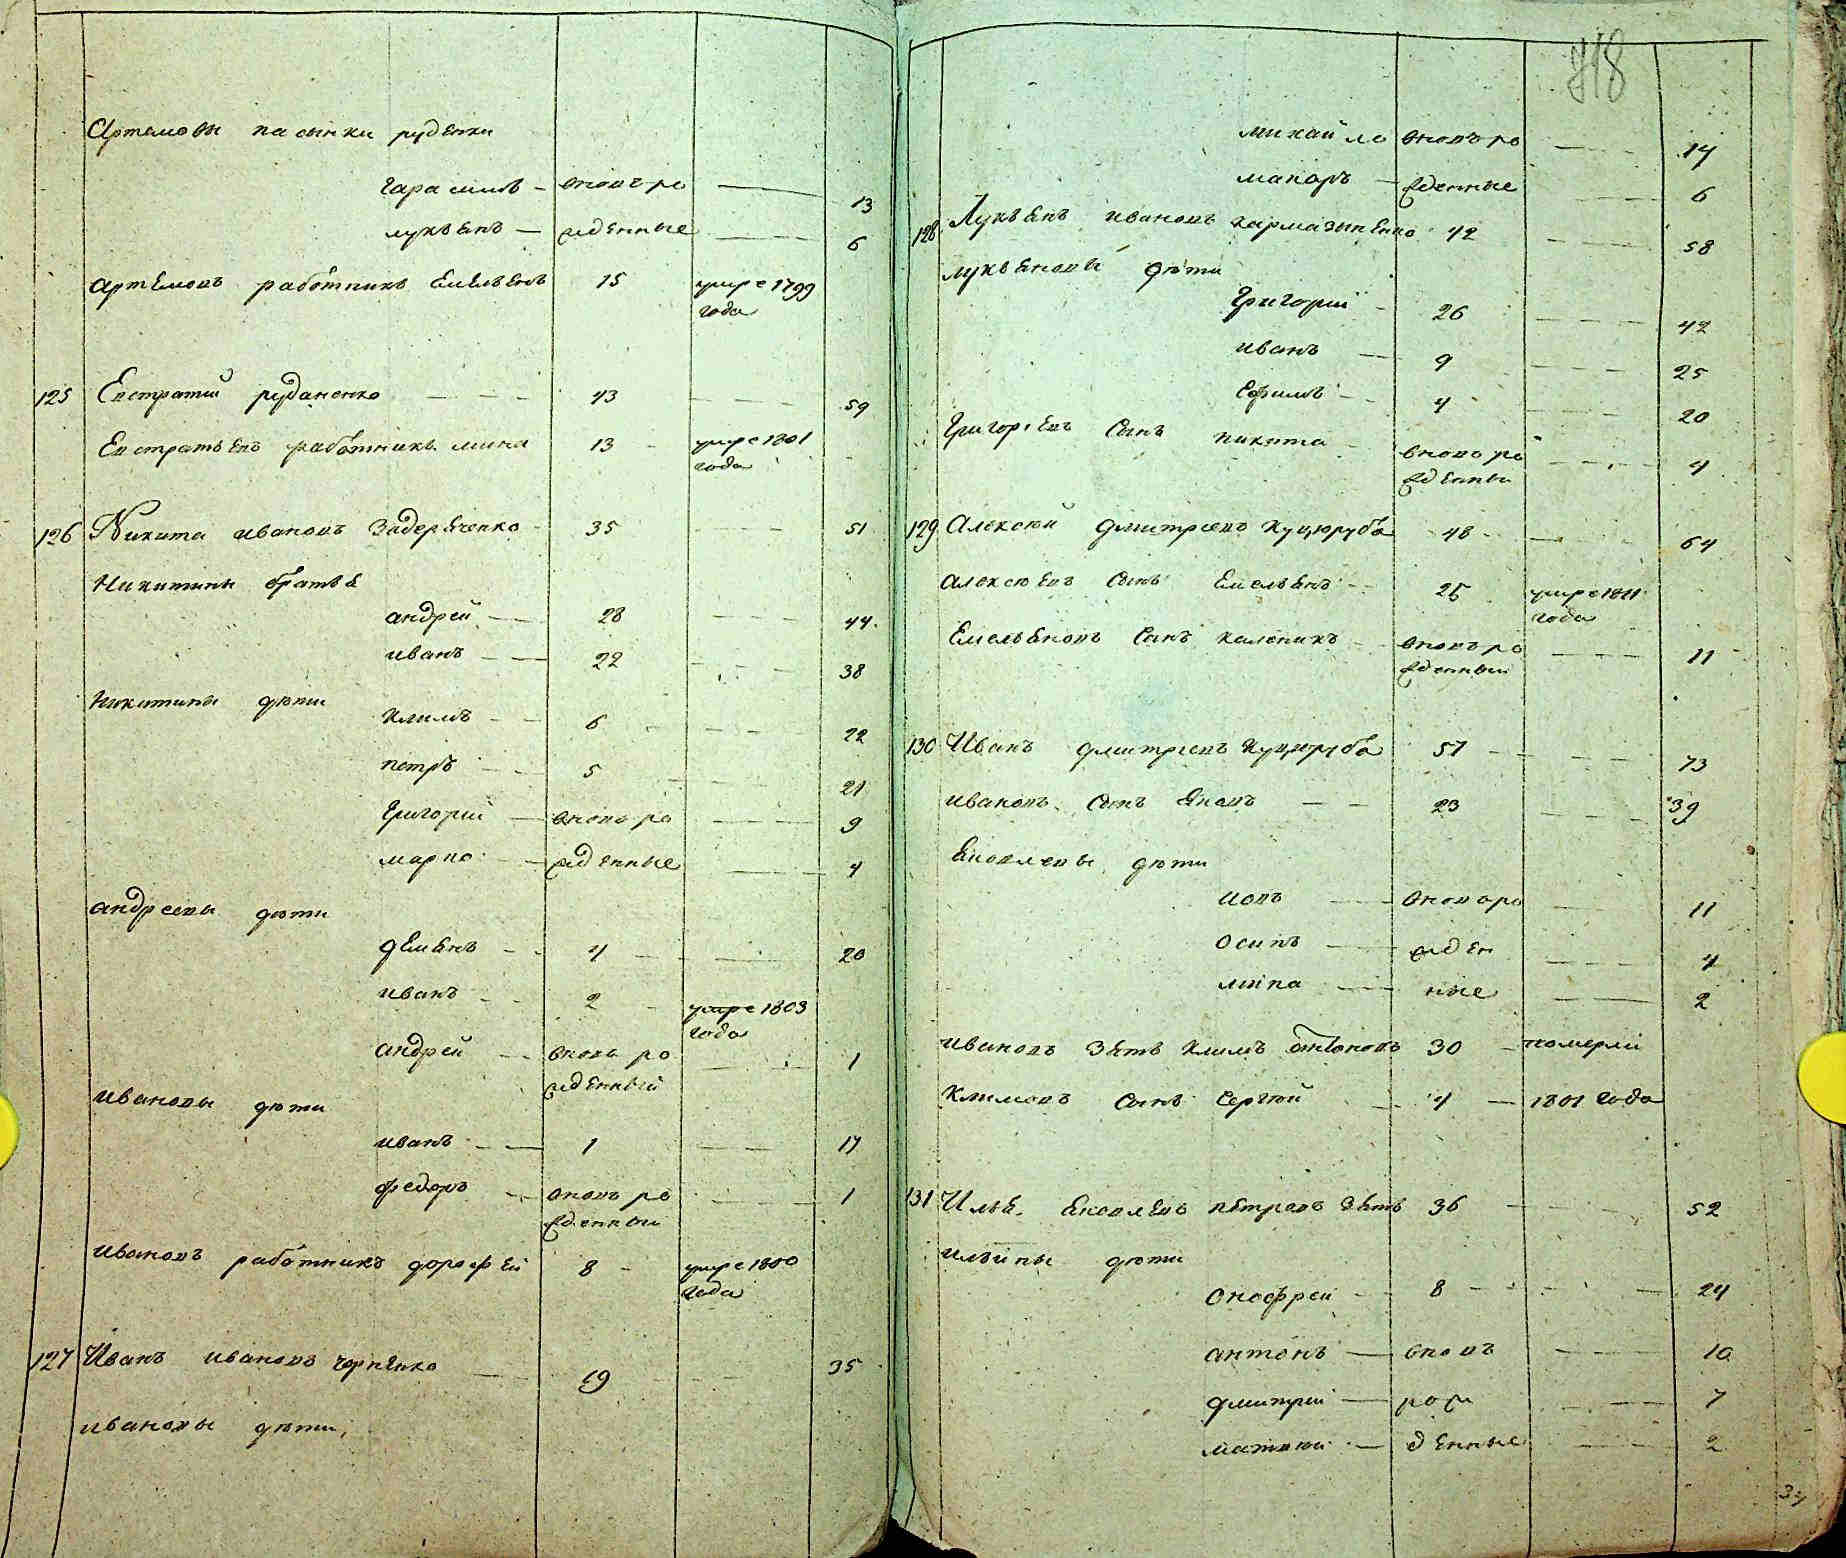 Артемовы пасынки руденки
Гарасимъ — вновь ро — 13
лукьянъ — жденные — 6
Артемовъ работникъ Емельянъ 15 умре 1799 года
125 Евстратий руданенко — 43 — 59
Евстратьевъ работникъ мина 13 — умре 1801 года
126 Никита ивановъ Задеряченко — 35 — 51
Никитины братья
андрей — 28 — 44
иванъ — 22 — 38
Никитины дѣти
климъ — 6 — 22
петръ — 5 — 21
Григорий — вновь ро — 9
марко — жденные — 4
андреевы дѣти
демянъ — 4 — 20
иванъ — 2 — умре 1803 года
андрей — вновь ро — 1
жденный
ивановы дѣти
иванъ — 1 — 17
федоръ — вновь ро — 1
жденный
ивановъ работникъ дорофей 8 — умре 1800 года
127 Иванъ ивановъ черненко — 19 — 35
ивановы дѣти
718
михайло вновь ро — 14
макаръ — жденные — 6
128 Лукьянъ ивановъ кармазыненко 42 — 58
лукьяновы дѣти
Григорий — 26 — 42
иванъ — 9 — 25
Ефимъ — 4 — 20
Григорьевъ сынъ никита — вновь ро — 4
жденный
129 Алексѣй дмитриевъ куцоруба 48 — 64
алексѣевъ сынъ Емельянъ — 25 умре 1811 года
Емельяновъ сынъ каленикъ — вновь ро — 11
жденный
130 Иванъ дмитриевъ куцоруба 57 — 73
ивановъ сынъ яковъ — 23 — 39
Яковлевы дѣти
иовъ — вновь ро — 11
осипъ — жден — 4
мина — ные — 2
ивановъ зять климъ антоновъ 30 — померли
климовъ сынъ Сергѣй — 4 — 1801 года
131 Илья яковлевъ петровъ зять 36 — 52
ильины дѣти
онофрей — 8 — 24
антонъ — вновь — 10
дмитрий — рож — 7
матвѣй — денные — 2